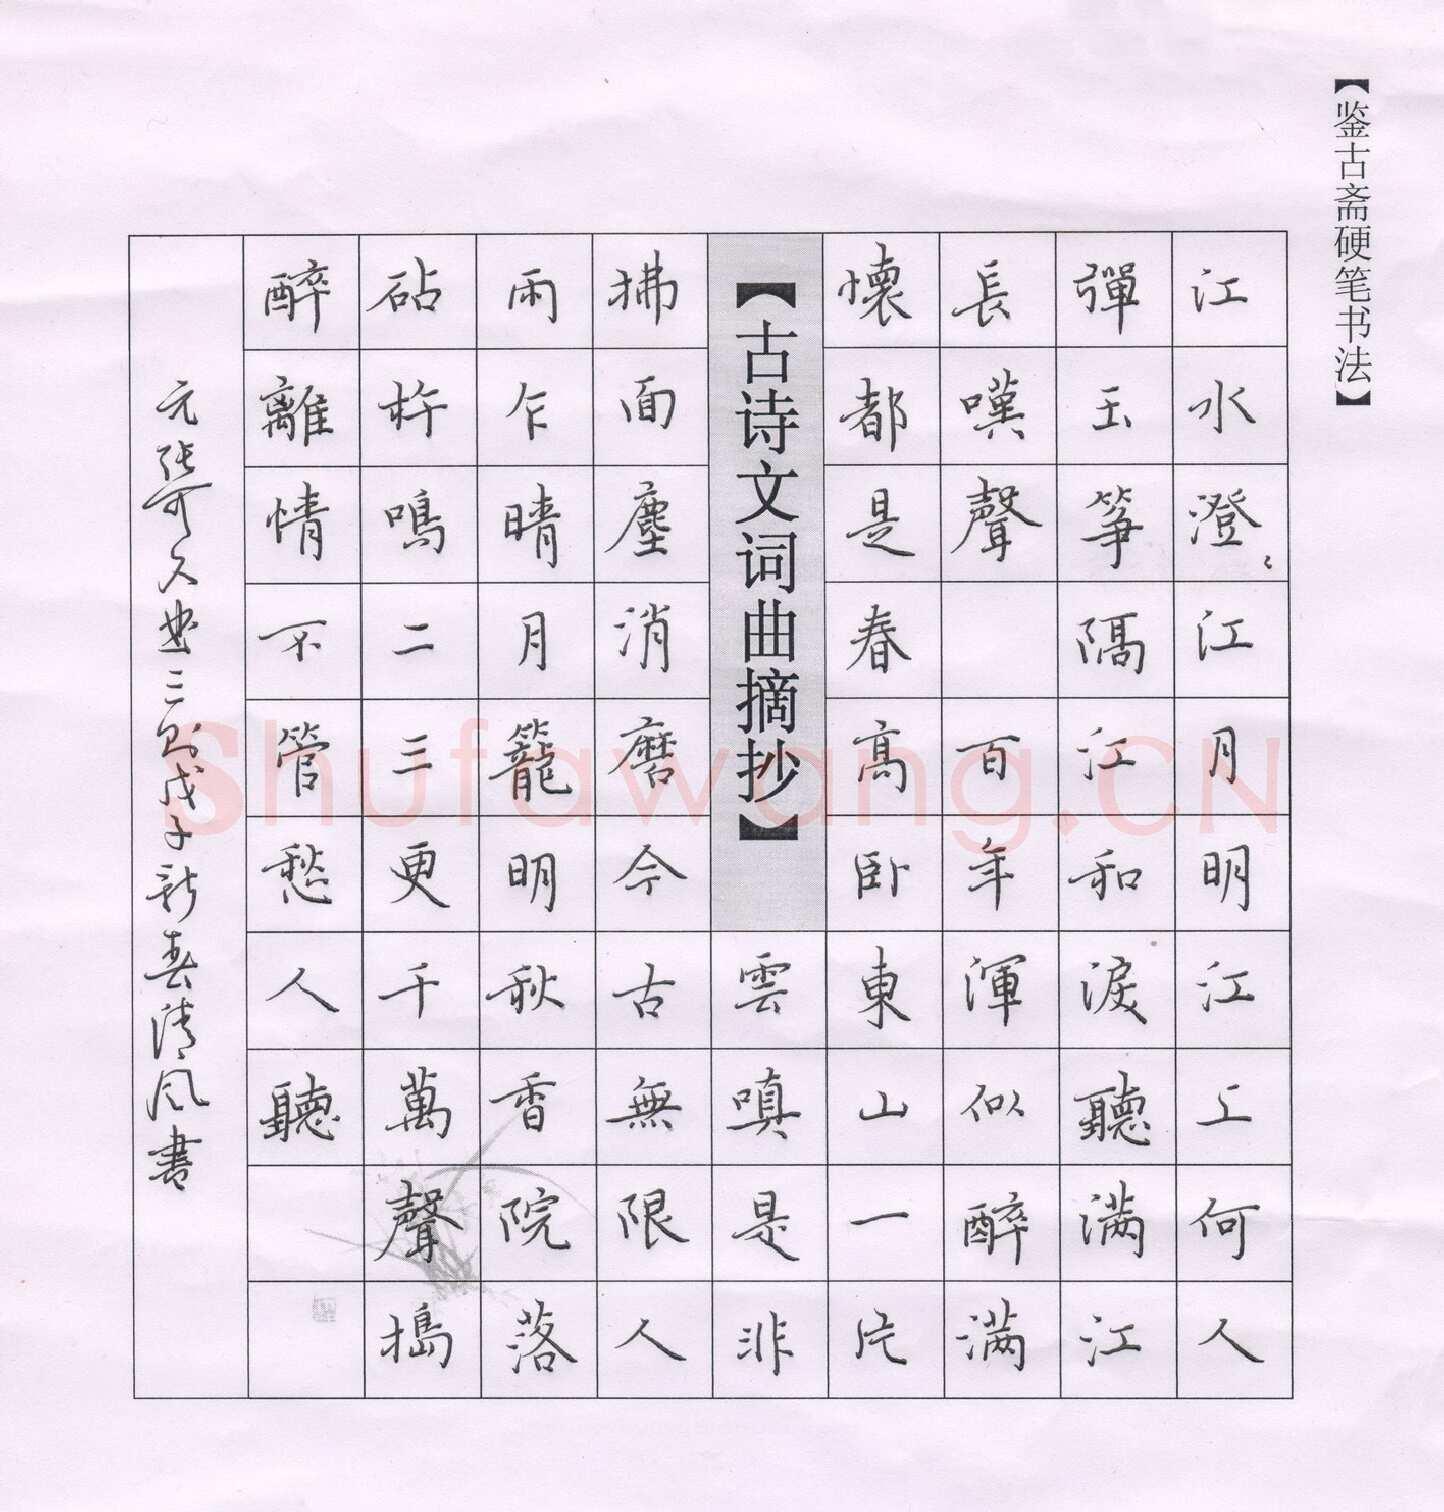 【鉴古斋硬笔书法】
江水澄〻江月明江上何人
彈玉筝隔江和淚聽满江
長嘆聲 百年渾似醉满
懷都是春高卧東山一片
【古诗文词曲摘抄】
雲嗔是非
拂面塵消磨今古無限人
雨乍晴月籠明秋香院落
砧杵鳴二三更千萬聲搗
醉離情不管愁人聽
元張可久曲三, 戊子新春清风書
Shufawang.CN